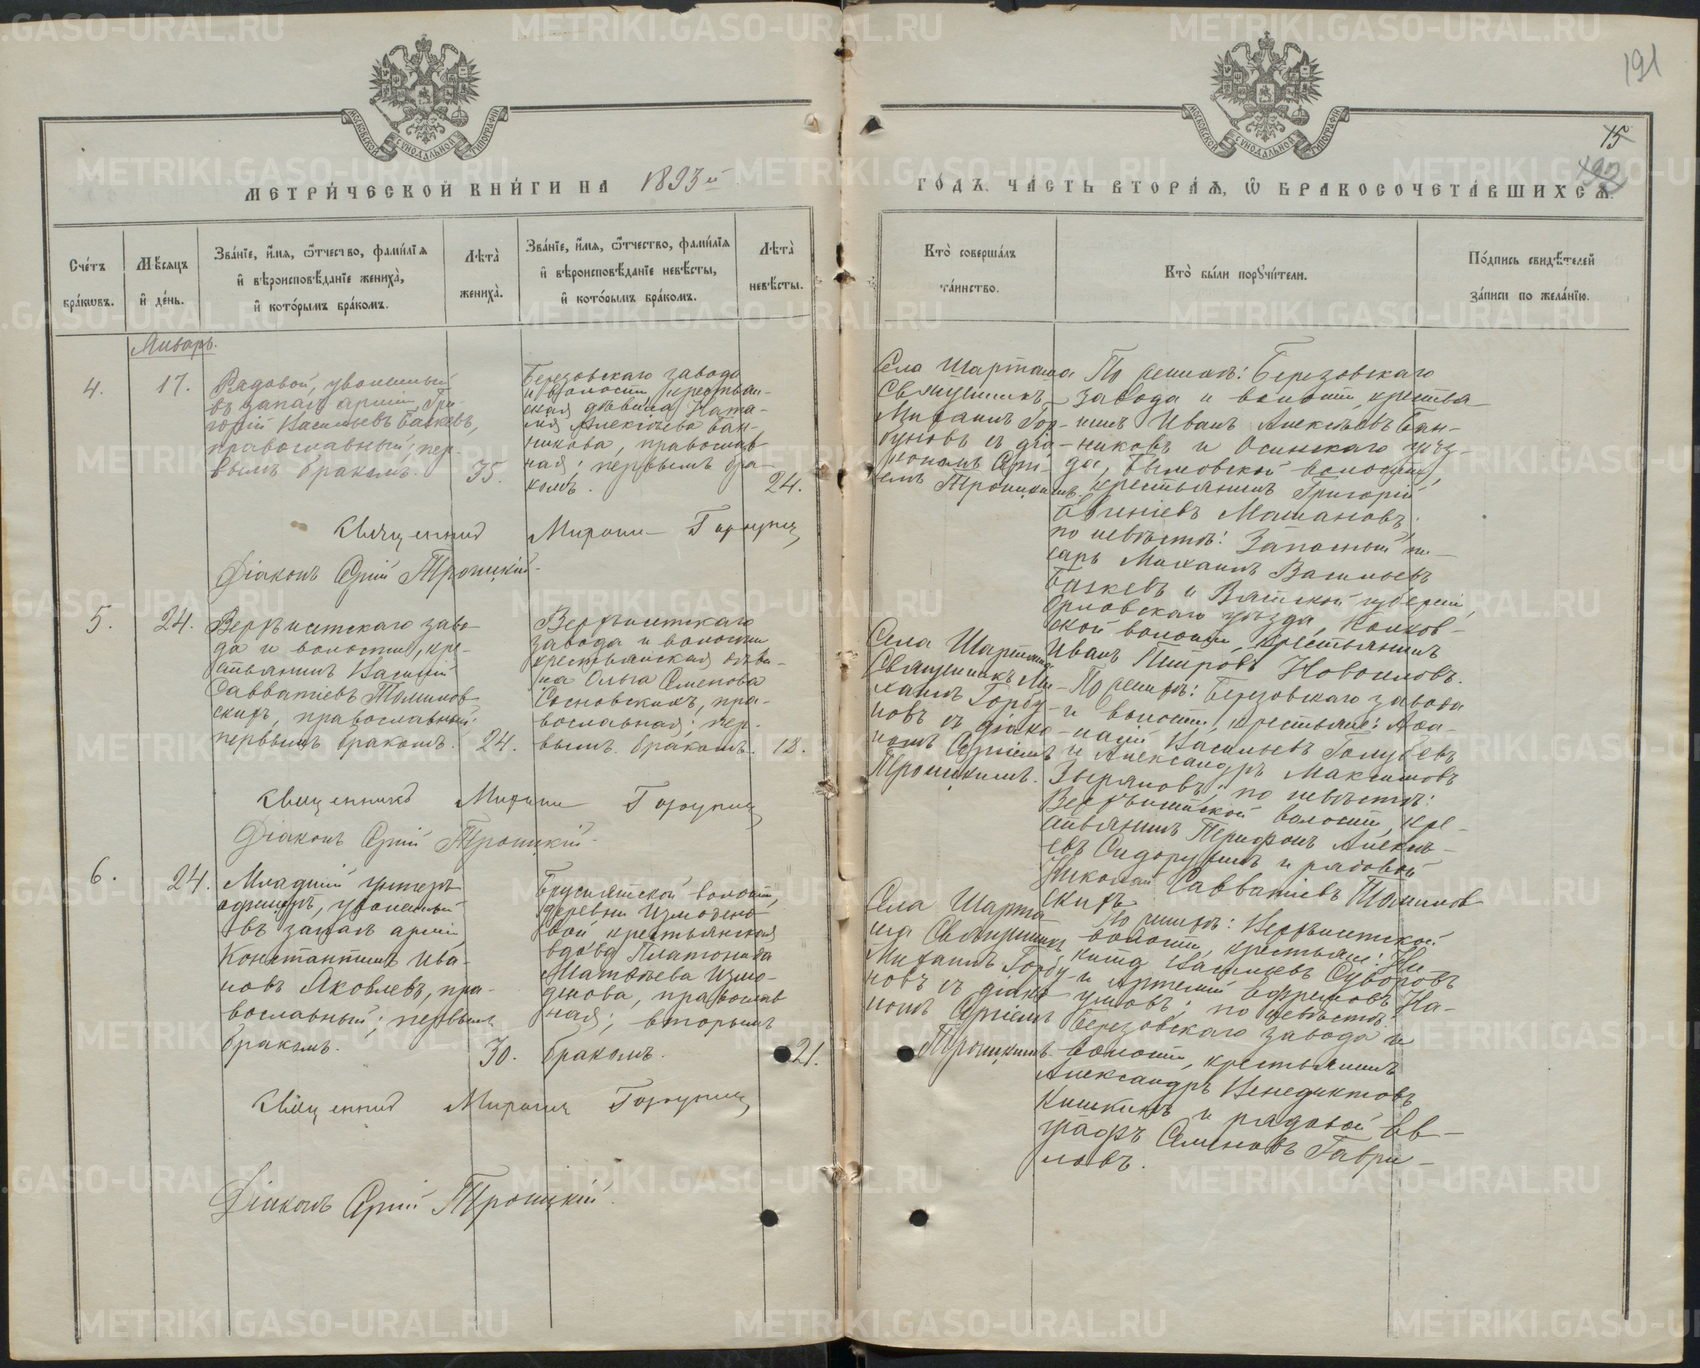 191
15
МЕТРИ́ЧЕСКОЙ КНИ́ГИ НА 1893й
ГО́ДЪ, ЧА́СТЬ ВТОРА́Я, Ѡ БРАКОСОЧЕТА́ВШИХСЯ.
МОСКОВСКОЙ СѴНОДАЛЬНОЙ ТИПОГРАФІИ
МОСКОВСКОЙ СѴНОДАЛЬНОЙ ТИПОГРАФІИ
Сче́тъ
бра́ковъ.
Мѣ́сяцъ
и̂ де́нь.
Зва́нїе, и́мя, ѻ́тчество, фами́лїя
и̂ вѣроисповѣ́данїе жениха̀,
и̂ кото́рымъ бра́комъ.
Лѣта̀
жениха̀.
Зва́нїе, и́мя, ѻ́тчество, фами́лїя
и̂ вѣроисповѣ́данїе невѣ́сты,
и̂ кото́рымъ бра́комъ.
Лѣта̀
невѣ́сты.
Кто̀ соверша́лъ
та́инство.
Кто̀ бы́ли поручи́тели.
По́дпись свидѣ́телей
за́писи по жела́нїю.
Январь.
4.
17.
Рядовой, уволенный
въ запасъ арміи, Гри-
горій Васильевъ
православный; пер-
вымъ бракомъ.
35.
Березовскаго завода
и волости, крестьян-
ская дѣвица Ната-
лія Алексѣева Бан-
никова, православ-
ная; первымъ бра-
комъ.
24.
Села Шарташа
Священникъ
Михаилъ Гор-
буновъ съ діа-
кономъ Арсі-
емъ Троицкимъ.
По женихѣ: Березовскаго
завода и волости, крестья-
нинъ Иванъ Алексѣевъ Бан-
никовъ и Осинскаго уѣз-
да, волости,
крестьянинъ Григорій
Евгеніевъ
по невѣстѣ: Запасный пи-
сарь Михаилъ Васильевъ
и Вятской губерніи,
Орловскаго уѣзда,
ской волости, крестьянинъ
Иванъ Петровъ Новоселовъ.
Священникъ Михаилъ Горбуновъ
Діаконъ Арсій Троицкій.
5.
24.
Верхъисетскаго заво-
да и волости, кре-
стьянинъ Василій
Савватіевъ Томилов-
скихъ, православный;
первымъ бракомъ.
24.
Верхъисетскаго
завода и волости
крестьянская дѣви-
ца Ольга Семенова
Сосновскихъ, пра-
вославная; пер-
вымъ бракомъ.
18.
Села Шарташа
Священникъ Ми-
хаилъ Горбу-
новъ съ діако-
номъ Арсіемъ
Троицкимъ.
По женихѣ: Березовскаго завода
и волости, крестьяне:
Васильевъ Голубевъ
и Александръ Максимовъ
Зыряновъ; по невѣстѣ:
Верхъисетской волости, кре-
стьянинъ Трифонъ Алексѣ-
евъ и рядовой
Николай Савватіевъ Томилов-
скихъ
Священникъ Михаилъ Горбуновъ
Діаконъ Арсій Троицкій.
6.
24.
Младшій унтеръ
офицеръ, уволенный
въ запасъ арміи
Константинъ Ива-
новъ Яковлевъ, пра-
вославный; первымъ
бракомъ.
30.
Брусянской волости,
деревни Измодено-
вой крестьянская
вдова Платонида
Матвѣева Измо-
денова, православ-
ная; вторымъ
бракомъ.
21.
Села Шарта-
ша Священникъ
Михаилъ Горбу-
новъ съ діако-
номъ Арсіемъ
Троицкимъ.
По женихѣ: Верхъисетской
волости, крестьяне: Ни-
кита Васильевъ Суворовъ
и Артемій Ефремовъ На-
умовъ; по невѣстѣ:
Березовскаго завода и
волости, крестьянинъ
Александръ Венедиктовъ
Кишкинъ и рядовой Ев-
графъ Семеновъ Гаври-
ловъ.
Священникъ Михаилъ Горбуновъ
Діаконъ Арсій Троицкій.
METRIKI.GASO-URAL.RU